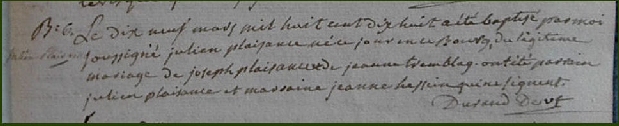 B. 6. Le dix neuf mars mil huit cent dix huit a été baptisé par moi
julien plaisance soussigné julien plaisance né ce jour en ce Bourg, du légitime
mariage de joseph plaisance & de jeanne tremblay. ont été parrain
julien plaisance et marraine jeanne hessein qui ne signent.
Durand Des.vt